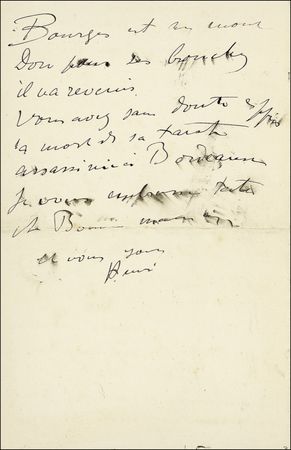 Bourges est au mont
Dore pour ses bronches
il va revenir.
Vous avez sans doute appris
la mort de sa tante
assassinée à Bordeaux
Je vous embrasse
et Bonne maman
et vous
Henri